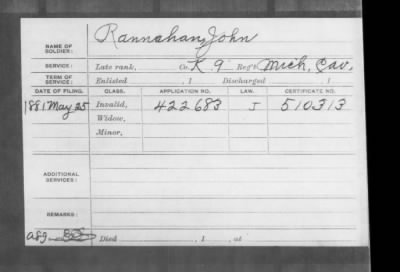 NAME OF SOLDIER: Rannahan, John
SERVICE: Late rank, Co. K 9 Reg't Mich. Cav.
TERM OF SERVICE: Enlisted , 1 Discharged , 1
DATE OF FILING. CLASS. APPLICATION NO. LAW. CERTIFICATE NO.
1881 May 25 Invalid, 422683 J 510313
Widow,
Minor,
ADDITIONAL SERVICES:
REMARKS:
Died , 1 , at